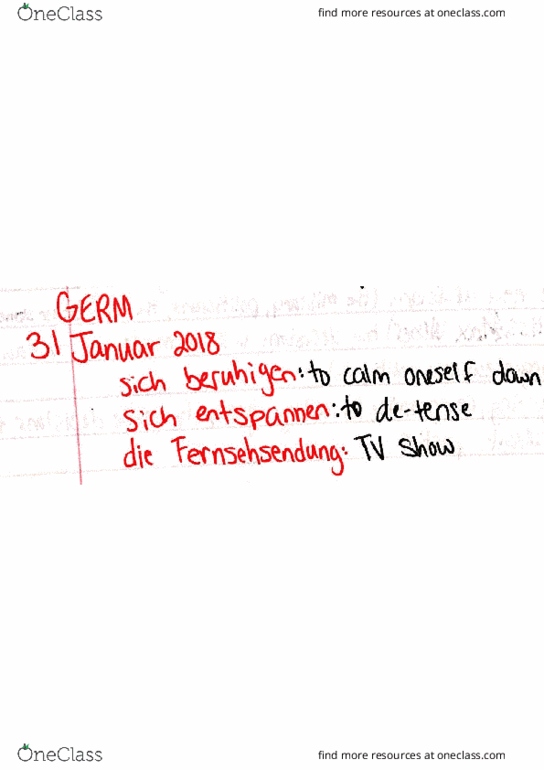 OneClass
find more resources at oneclass.com
GERM
31 Januar 2018
sich beruhigen: to calm oneself down
sich entspannen: to de-tense
die Fernsehsendung: TV show
OneClass
find more resources at oneclass.com